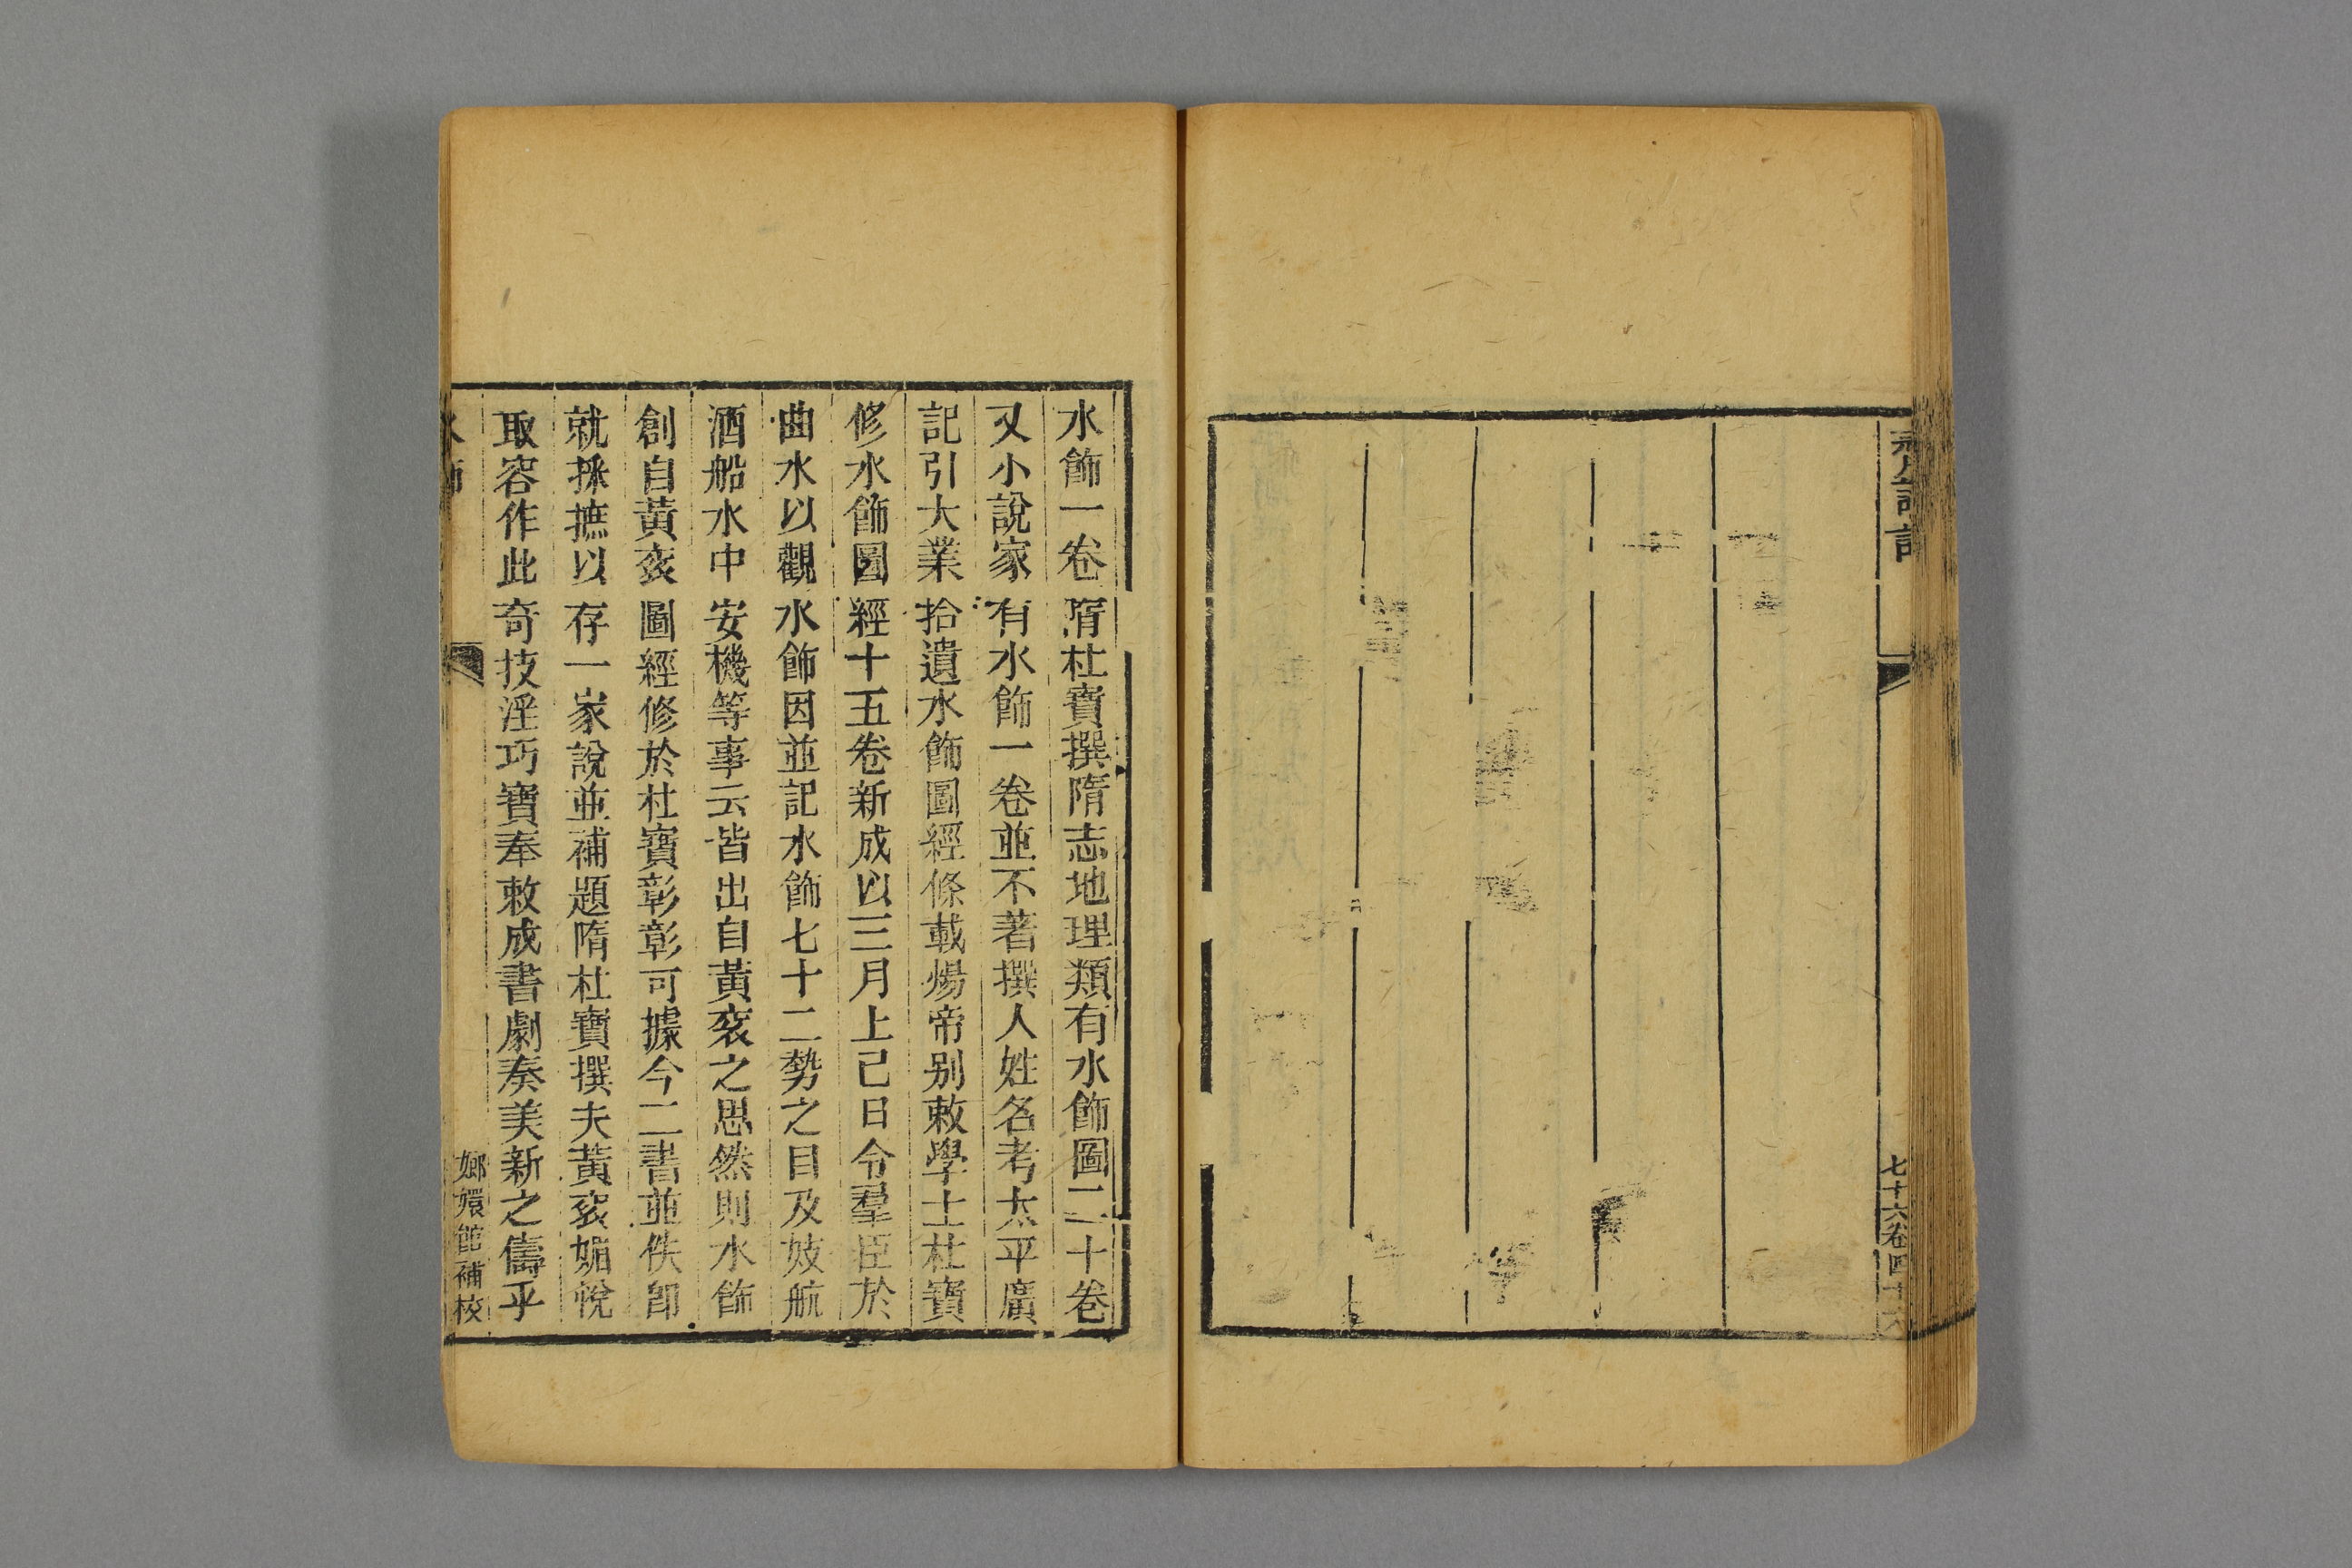 七十六卷四十六
水飾一卷隋杜寶撰隋志地理類有水飾圖二十卷
又小說家有水飾一卷並不著撰人姓名考太平廣
記引大業拾遺水飾圖經條載煬帝别敕學士杜寶
修水飾圖經十五卷新成以三月上己日令羣臣於
曲水以觀水飾因並記水飾七十二勢之目及妓航
酒船水中安機等事云皆出自黃袞之思然則水飾
創自黃袞圖經修於杜寶彰彰可據今二書並佚卽
就採摭以存一家說並補題隋杜寶撰夫黃袞媚悅
取容作此奇技淫巧寶奉敕成書劇奏美新之儔乎
水飾
嫏嬛館補校